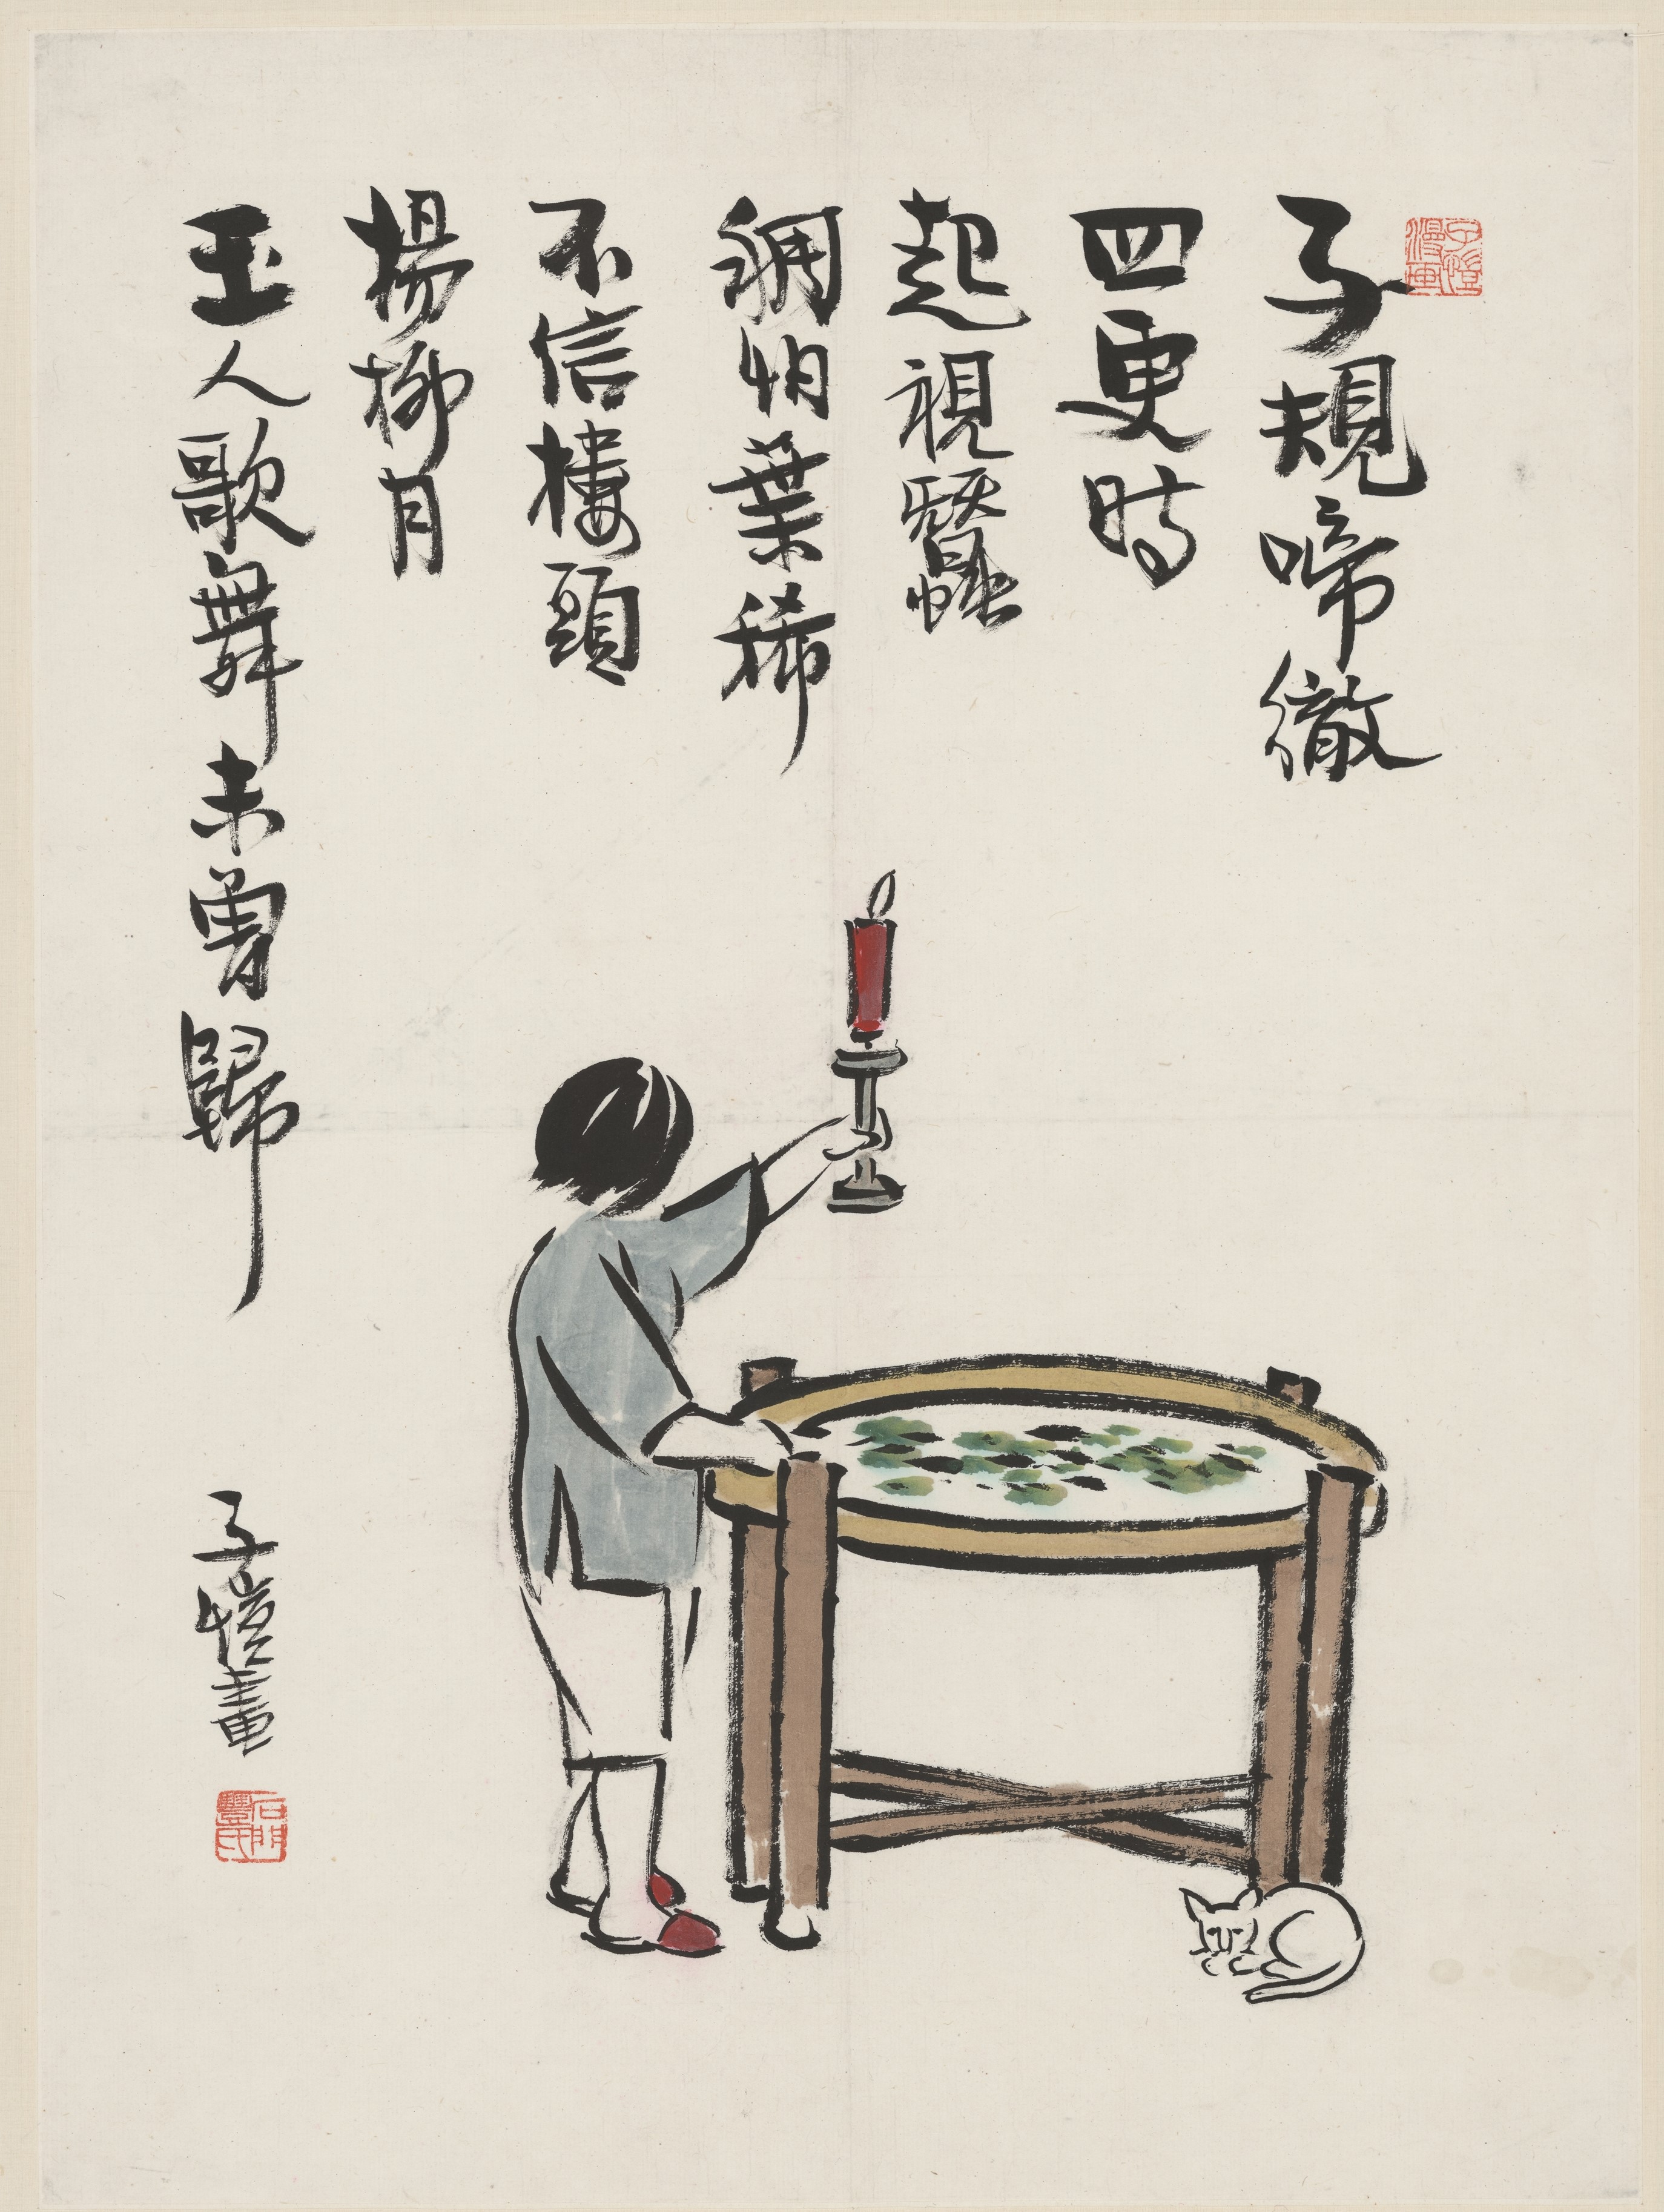 子規啼徹
四更時
起視蠶
稠怕葉稀
不信樓頭
楊柳月
玉人歌舞未曾歸
子愷畫
子愷漫畫
石門豐氏